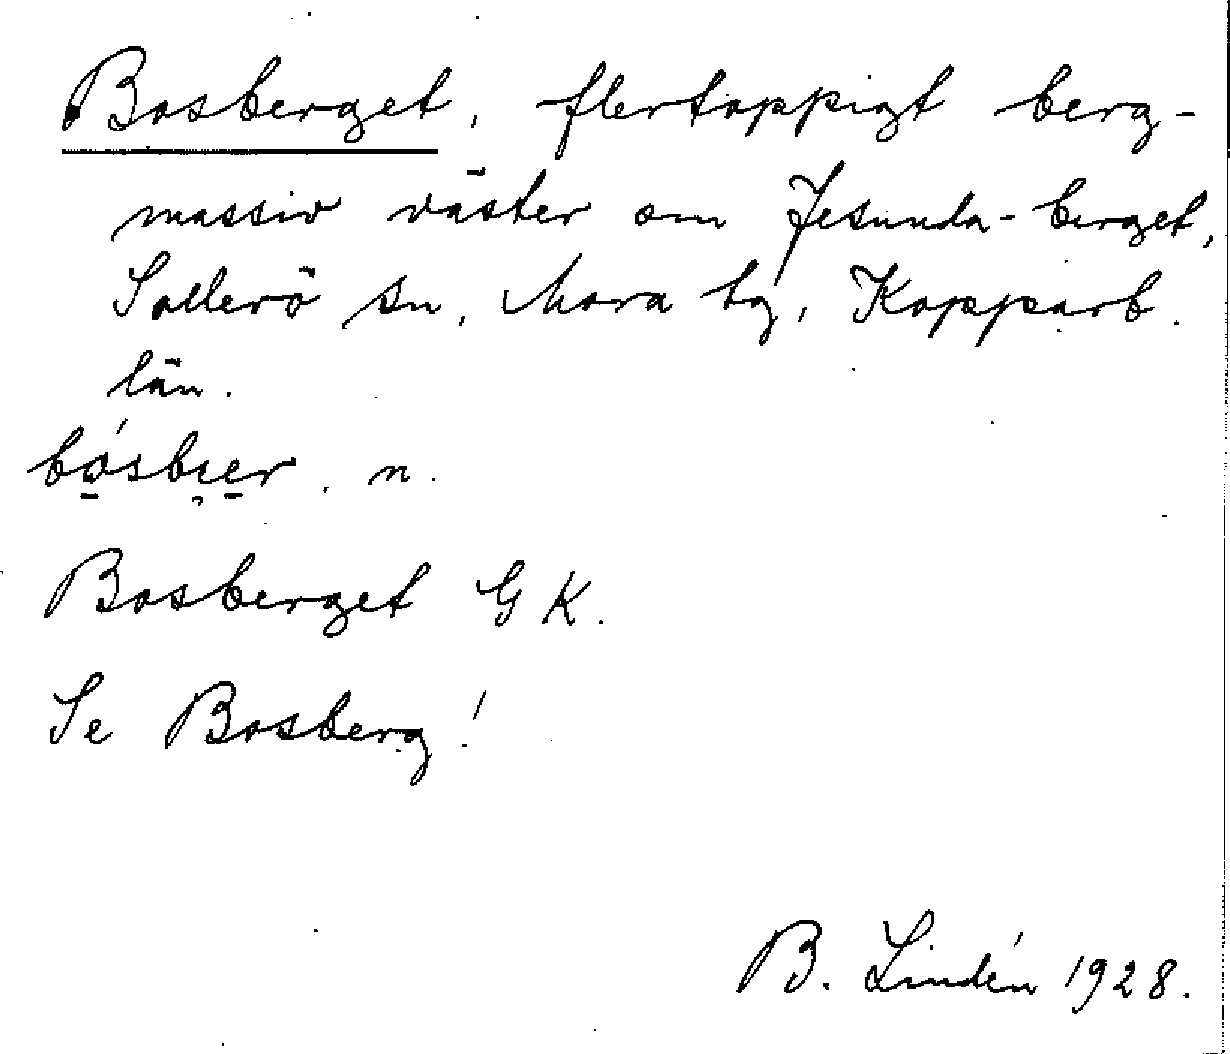 Bosberget, flertoppigt berg-
massiv väster om Jesunda-berget,
Sollerö sn, Mora tg, Kopparb.
län.
n.
Bosberget GK.
Se Bosberg!
B. Lindén 1928.